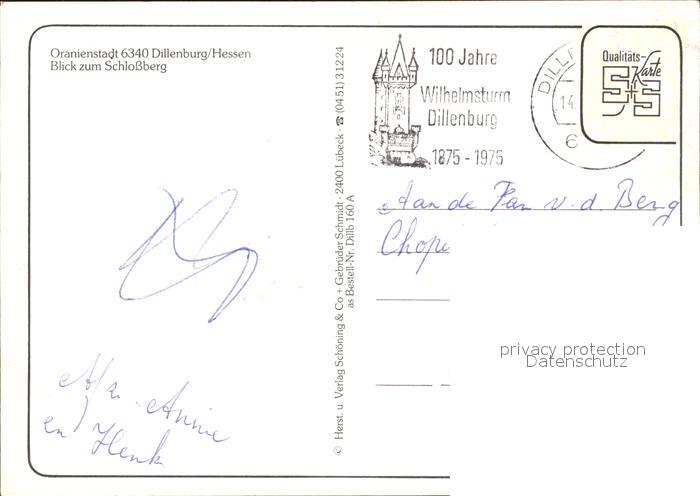 Oranienstadt 6340 Dillenburg/Hessen
Blick zum Schloßberg
© Herst. u. Verlag Schöning & Co + Gebrüder Schmidt · 2400 Lübeck · ☎ (04 51) 3 12 24
as Bestell-Nr. Dillb 160 A
100 Jahre
Wilhelmsturm
Dillenburg
1875 - 1975
DILL
14.
6
Qualitäts-
Karte
S+S
Aan de Fam v. d. Berg
Chop
Annie
en Henk
privacy protection
Datenschutz